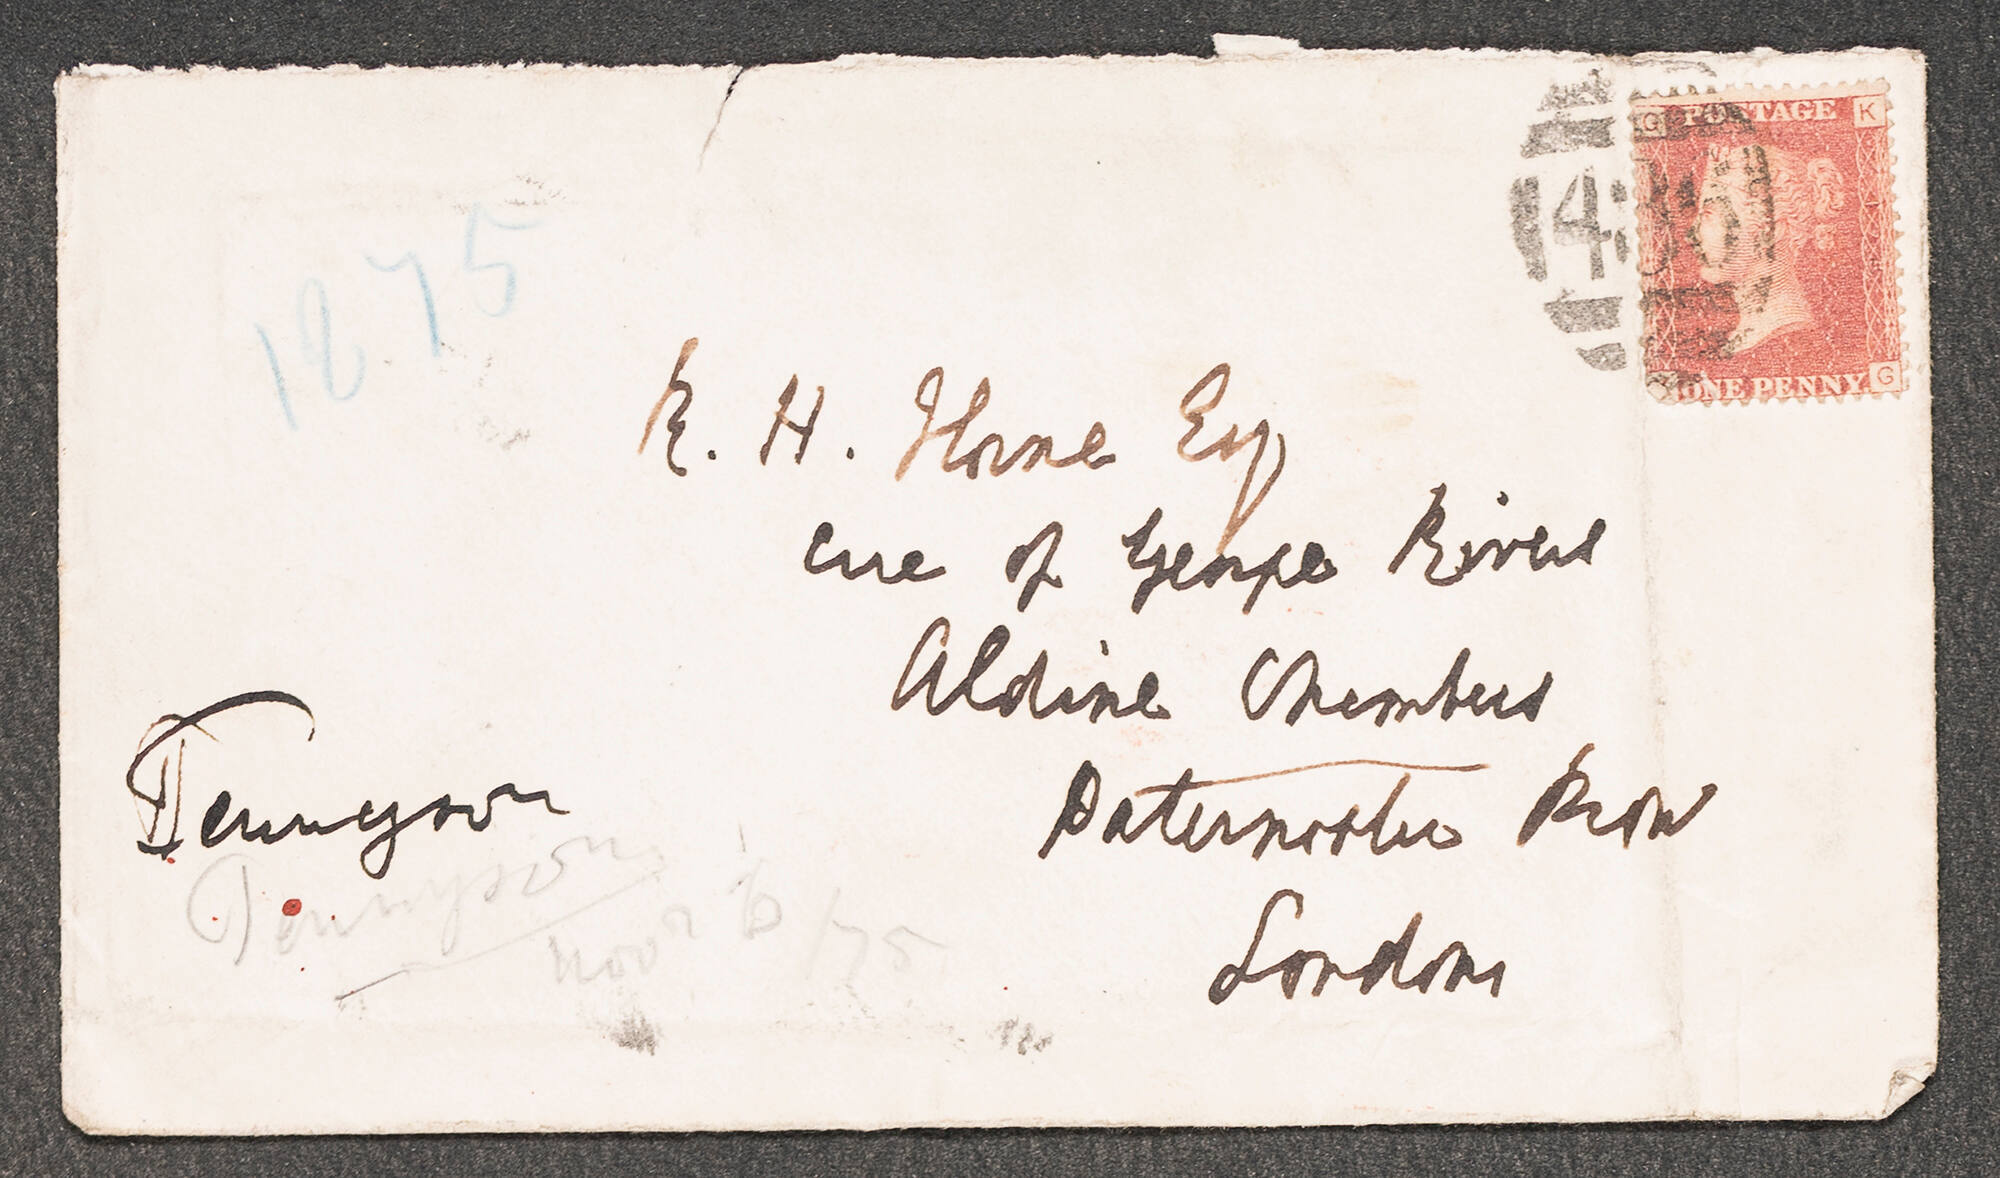 1875
G POSTAGE K
ONE PENNY G
R. H. Horne Esq
care of George Rivers
Aldine Chambers
Paternoster Row
London
Tennyson
Tennyson
Nov 6/75